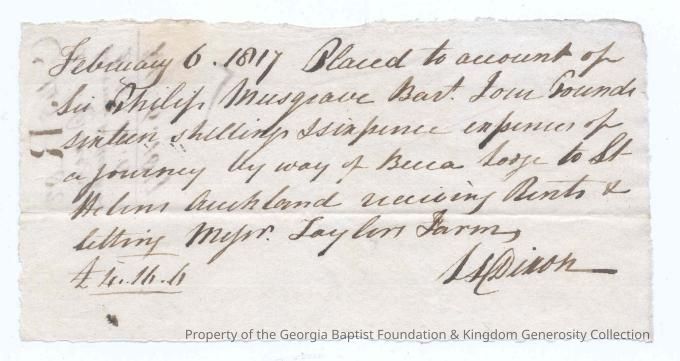 February 6. 1817 Placed to account of
Sir Philip Musgrave Bart. Four Pounds
sixteen shillings & sixpence expences of
a journey by way of Becca Lodge to St
Helens Auckland receiving Rents &
letting Messrs. Taylors Farm,
£4.16.6
Dixon
B
Property of the Georgia Baptist Foundation & Kingdom Generosity Collection